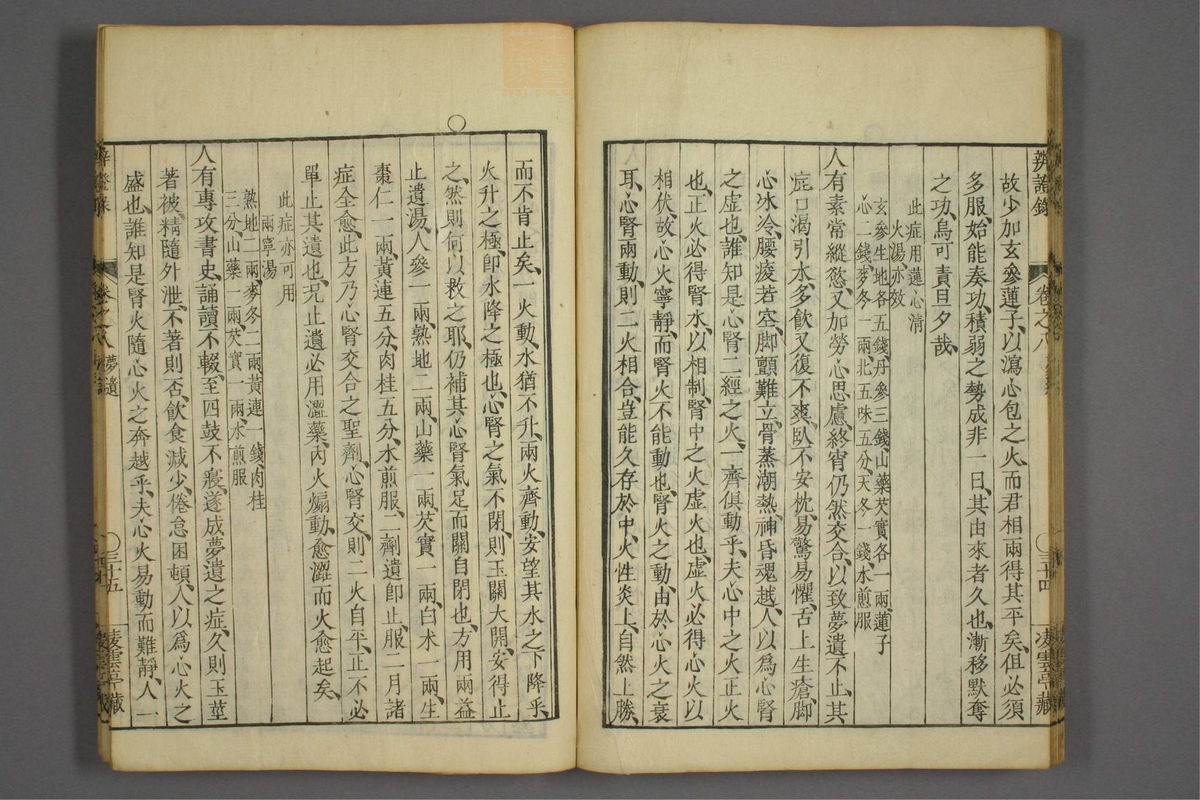 辨證錄
卷之八
○三十四
凌雲亭藏
故少加玄參蓮子、以瀉心包之火、而君相兩得其平矣、但必須
多服、始能奏功、積弱之勢成非一日、其由來者久也、漸移默奪
之功、烏可責旦夕哉、
此症用蓮心清
火湯亦效
玄參生地各五錢、丹參三錢、山藥芡實各一兩、蓮子
心二錢、麥冬一兩、北五味五分、天冬一錢、水煎服
人有素常縱慾、又加勞心思慮、終宵仍然交合、以致夢遺不止、其
症口渴引水、多飲又復不爽、臥不安枕、易驚易懼、舌上生瘡、脚
心冰冷、腰痠若空、脚顫難立、骨蒸潮熱、神昏魂越、人以爲心腎
之虛也、誰知是心腎二經之火、一齊俱動乎、夫心中之火正火
也、正火必得腎水以相制、腎中之火虛火也、虛火必得心火以
相伏、故心火寧靜、而腎火不能動也、腎火之動、由於心火之衰
耳、心腎兩動、則二火相合、豈能久存於中、火性炎上、自然上勝、
而不肯止矣、一火動、水猶不升、兩火齊動、安望其水之下降乎、
火升之極、卽水降之極也、心腎之氣不閉、則玉關大開、安得止
之、然則何以救之耶、仍補其心腎、氣足而關自閉也、方用兩益
止遺湯、人參一兩、熟地二兩、山藥一兩、芡實一兩、白术一兩、生
棗仁一兩、黃連五分、肉桂五分、水煎服、二劑遺卽止、服二月諸
症全愈、此方乃心腎交合之聖劑、心腎交、則二火自平、正不必
單止其遺也、況止遺必用澀藥、內火煽動、愈澀而火愈起矣、
此症亦可用
兩寧湯
熟地二兩、麥冬二兩、黃連一錢、肉桂
三分、山藥一兩、芡實一兩、水煎服
人有專攻書史、誦讀不輟、至四鼓不寢、遂成夢遺之症、久則玉莖
著被、精隨外泄、不著則否、飲食減少、倦怠困頓、人以爲心火之
盛也、誰知是腎火隨心火之奔越乎、夫心火易動而難靜、人一
辨證錄
卷之八
夢遺
○三十五
凌雲亭藏